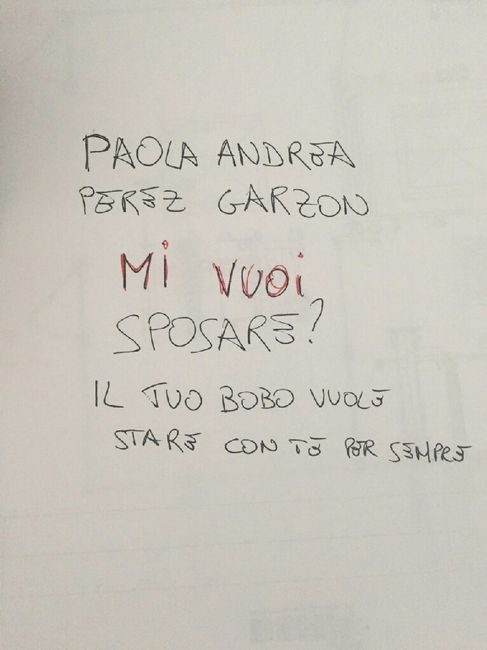 PAOLA ANDREA
PEREZ GARZON
Mi VUOi
SPOSARE?
IL TUO BOBO VUOLE
STARE CON TE PER SEMPRE